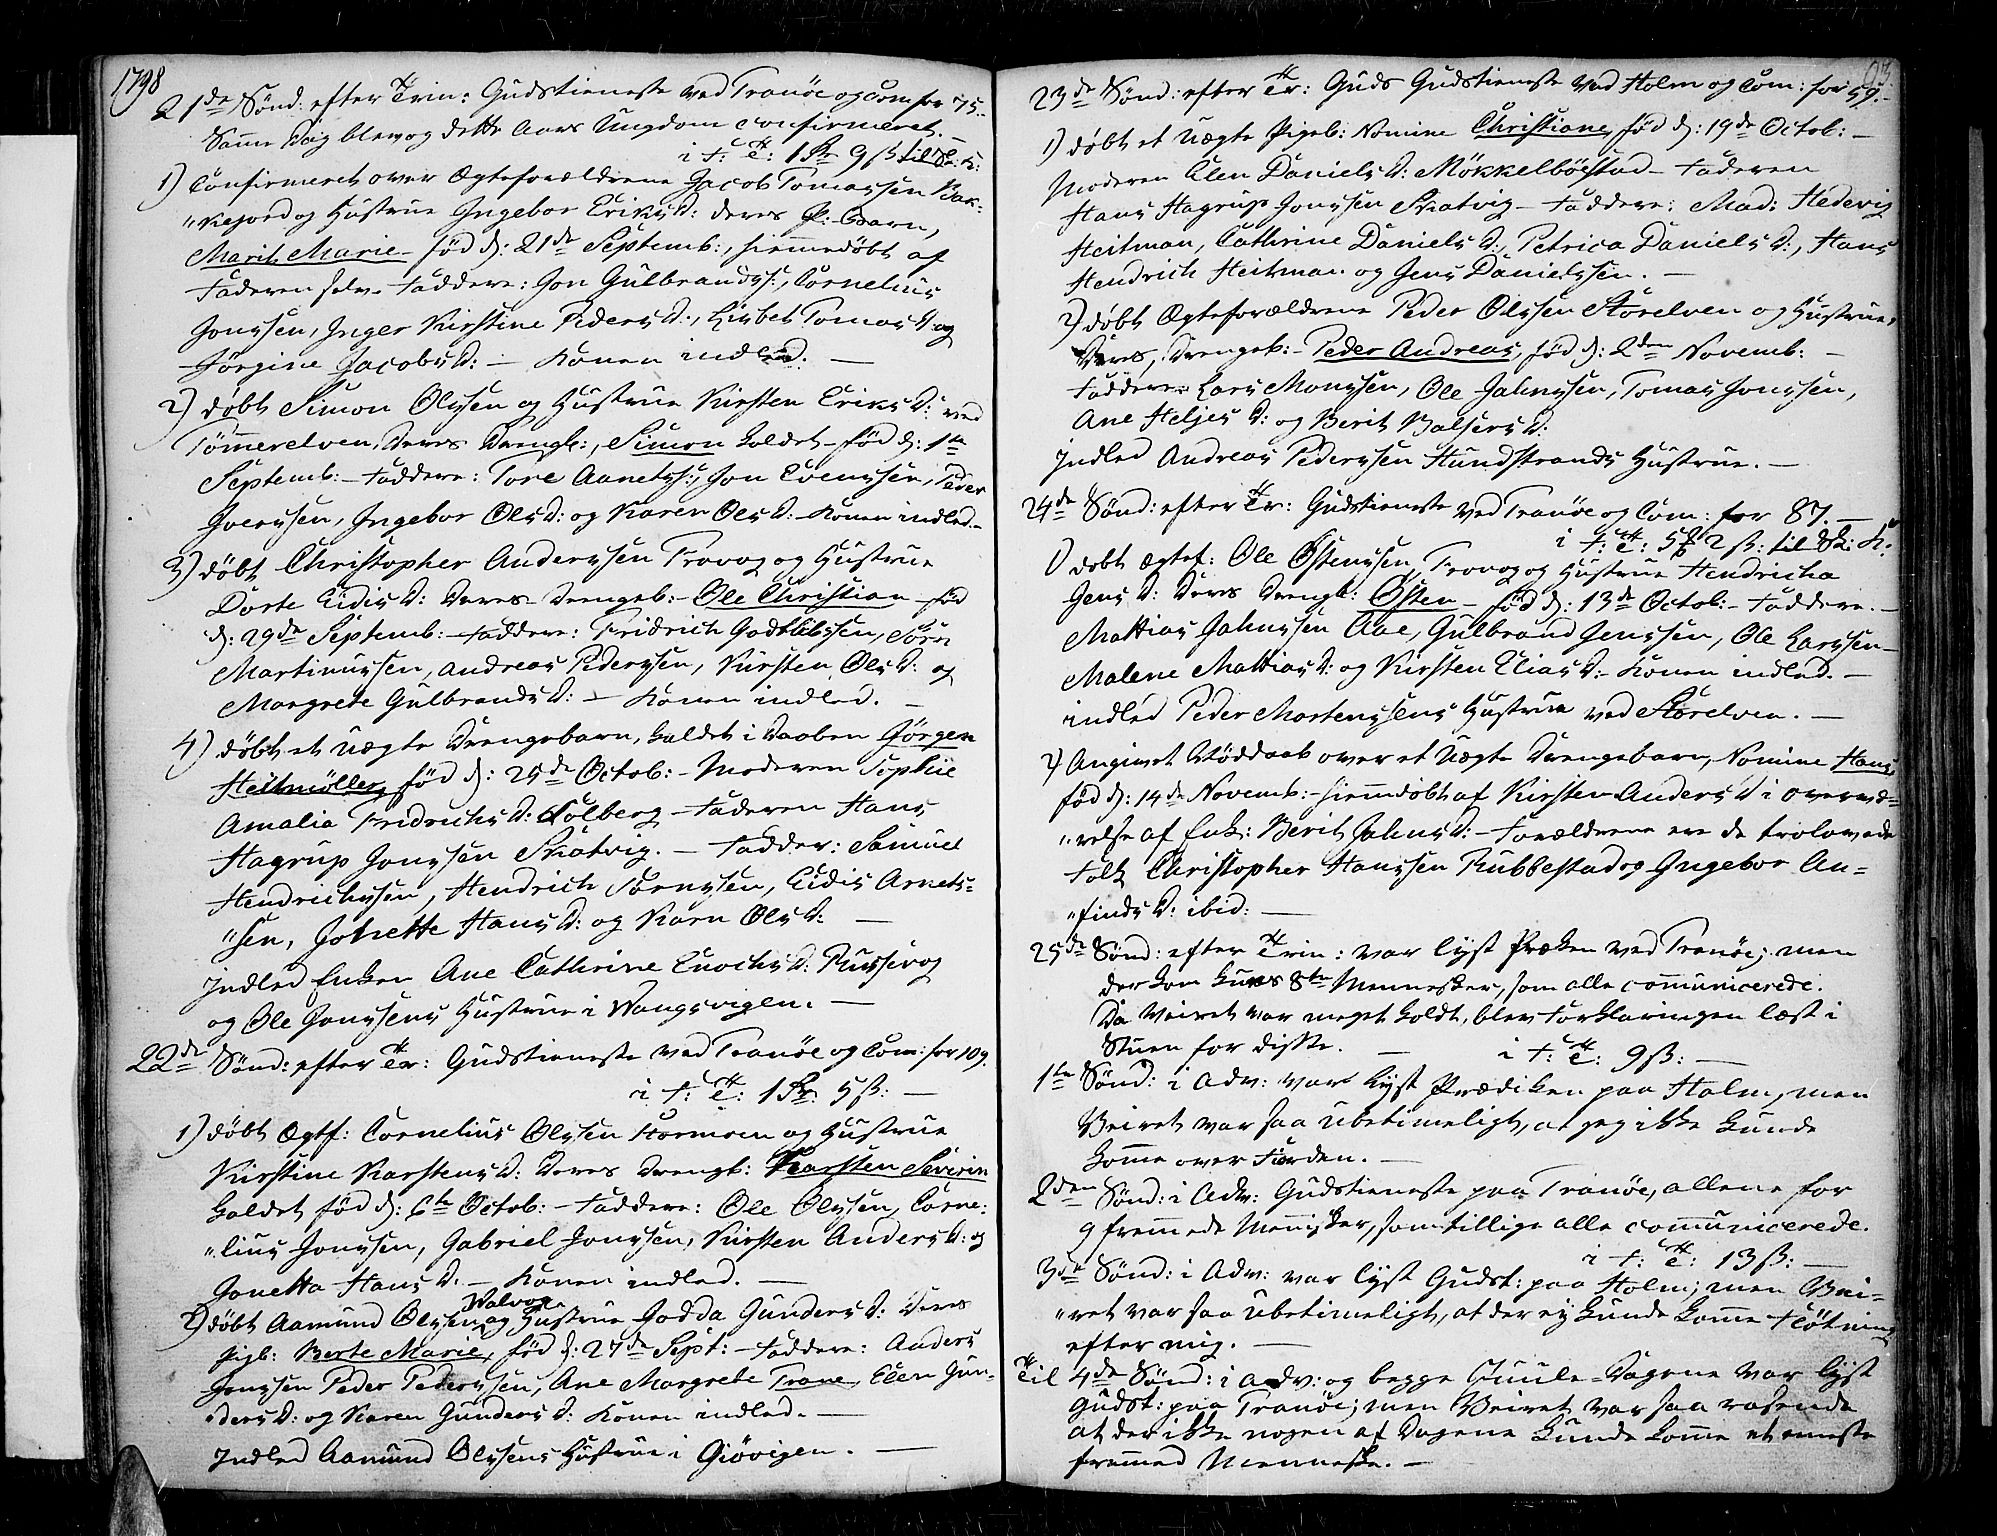 1798
21de Sønd: efter Trin: Gudstieneste ved Tranøe og Com for 75.
Samme Dag blev og dette Aars Ungdom confirmeret. –
i T: T: 1 9 ß til K:
1) Confirmeret over Ægteforældrene Jacob Tomassen Bak-
"kejord og Hustrue Ingebor Eriks D: deres P: Barn,
Marit Marie – fød d: 21de Septemb:, hiemmedøbt af
Faderen selv. Faddere: Jon Gulbrands:, Cornelius
Jonssen, Inger Kirstine Peders D:, Lisbet Tomas D: og
Jørgine Jacobs D: – Konen indled. –
2) døbt Simon Olssen og Hustrue Kirsten Eriks D: ved
Tømmerelven, deres Drengb:, Simon kaldet – fød d: 1te
Septemb: – Faddere: Tore Aanets:, Jon Evenssen, Peder
Iverssen, Ingebor Ols D: og Karen Ols D: – Konen indled. –
3) døbt Christopher Anderssen Frovog og Hustrue
Dorte Eidis D: deres Drengeb: – Ole Christian – fød
d: 29de Septemb: – Faddere: Fridrich Godtlibssen, Sørn
Martinussen, Andreas Pederssen, Kirsten Ols D: og
Margrete Gulbrands D: – Konen indled. –
4) døbt et uægte Drengebarn, kaldet i Daaben Jørgen
Heitmøller, fød d: 25de Octob: – Moderen Sophie
Amalia Fridrichs D: Colberg – Faderen Hans
Hagrup Jonssen Skatvig. – Fadder: Samuel
Hendrichssen, Hendrich Sørnssen, Eidis Arnets-
"sen, Johette Hans D: og Karn Ols D: –
Indled Enken Ane Cathrine Enochs D: Russevog
og Ole Jonssens Hustrue i Wangsvigen. –
22de Sønd: efter Tr: Gudstieneste ved Tranøe og Com: for 109.
i T: T: 1 5 ß: –
1) døbt Ægtf: Cornelius Olssen Stormoen og Hustrue
Kirstine Karstens D: deres Drengb: Karsten Severin
kaldet fød d: 6te Octob: – Faddere: Ole Olssen, Corne:
"lius Jonssen, Gabriel Jonssen, Kirsten Anders D: og
Jonetta Hans D: – Konen indled. –
Valvog
2) døbt Aamund Olssen og Hustrue Godda Gunders D: deres
Pigb: Berte Marie, fød d: 27de Sept: – Faddere: Anders
Jonssen Peder Pederssen, Ane Margrete Trane, Elen Gun-
"ders D: og Karen Gunders D: Konen indled. –
Indled Aamund Olssens Hustrue i Giøvigen. –
93.
23de Sønd: efter Tr: Guds Gudstieneste ved Holm og Com: for 59. –
1) døbt et uægte Pigeb: Nomine Christiane, fød d: 19de Octob: –
Moderen Elen Daniels D: Møkkelbøstad – Faderen
Hans Hagrup Jonssen Skatvig – Faddere: Mad: Hedevig
Heitman, Cathrine Daniels D:, Petrica Daniels D:, Hans
Hendrich Heitman og Jens Danielssen. –
2) døbt Ægteforældrene Peder Olssen Storelven og Hustrues
deres, Drengeb: – Peder Andreas, fød d: 2den Novemb: –
Faddere: Lars Monssen, Ole Jahnssen, Tomas Jonssen,
Ane Heljes D: og Berit Balsers D:
Indled Andreas Pederssen Hundstrands Hustrue. –
24de Sønd: efter Tr: Gudstieneste ved Tranøe og Com: for 87. –
i T: T: 5 2 ß: til K:
1) døbt Ægtef: Ole Østenssen, Frovog og Hustrue Hendricha
Jens D: deres Drengb: Østen – fød d: 13de Octob: – Faddere. –
Mattias Jahnssen Aae, Gulbrand Jenssen, Ole Larssen –
Malene Mattias D: og Kirsten Elias D: – Konen indled. –
indled Peder Mortenssens Hustrue ved Storelven. –
2) Angivet Nøddaab over et uægte Drengebarn, Nomine Hans,
fød d: 14de Novemb: – hiemdøbt af Kirsten Anders D: i overvæ-
"relse af Enk: Berit Jahns D: – Forældrene ere de trolovede
Folk Christopher Hanssen Rubbestad og Ingebor An-
"finds D: ibid: –
25de Sønd: efter Trin: var lyst Præken ved Tranøe; men
der kom kuns 8te Mennesker, som alle comunicerede.
Da Veiret var meget koldt, blev Forklaringen læst i
Stuen for disse. – i T: T: 9 ß: –
1te Sønd: i Adv: var lyst Prædiken paa Holm, men
Veiret var saa ubetimeligt, at jeg ikke kunde
komme over Fiorden. –
2den Sønd: i Adv: Gudstieneste paa Tranøe, allene for
9 fremmede Mennisker, som tillige alle communicerede.
i T: T: 13 ß: –
3die Sønd: i Adv: var lyst Gudst: paa Holm; men Vei-
"ret var saa ubetimeligt, at der ey kunde komme Fløtning
efter mig. –
Til 4de Sønd: i Adv: og begge Juule-Dagene var lyst
Gudst: paa Tranøe; men Veiret var saa rasende
at der ikke nogen af Dagene kunde komme et eneste
fremmed Menneske. –